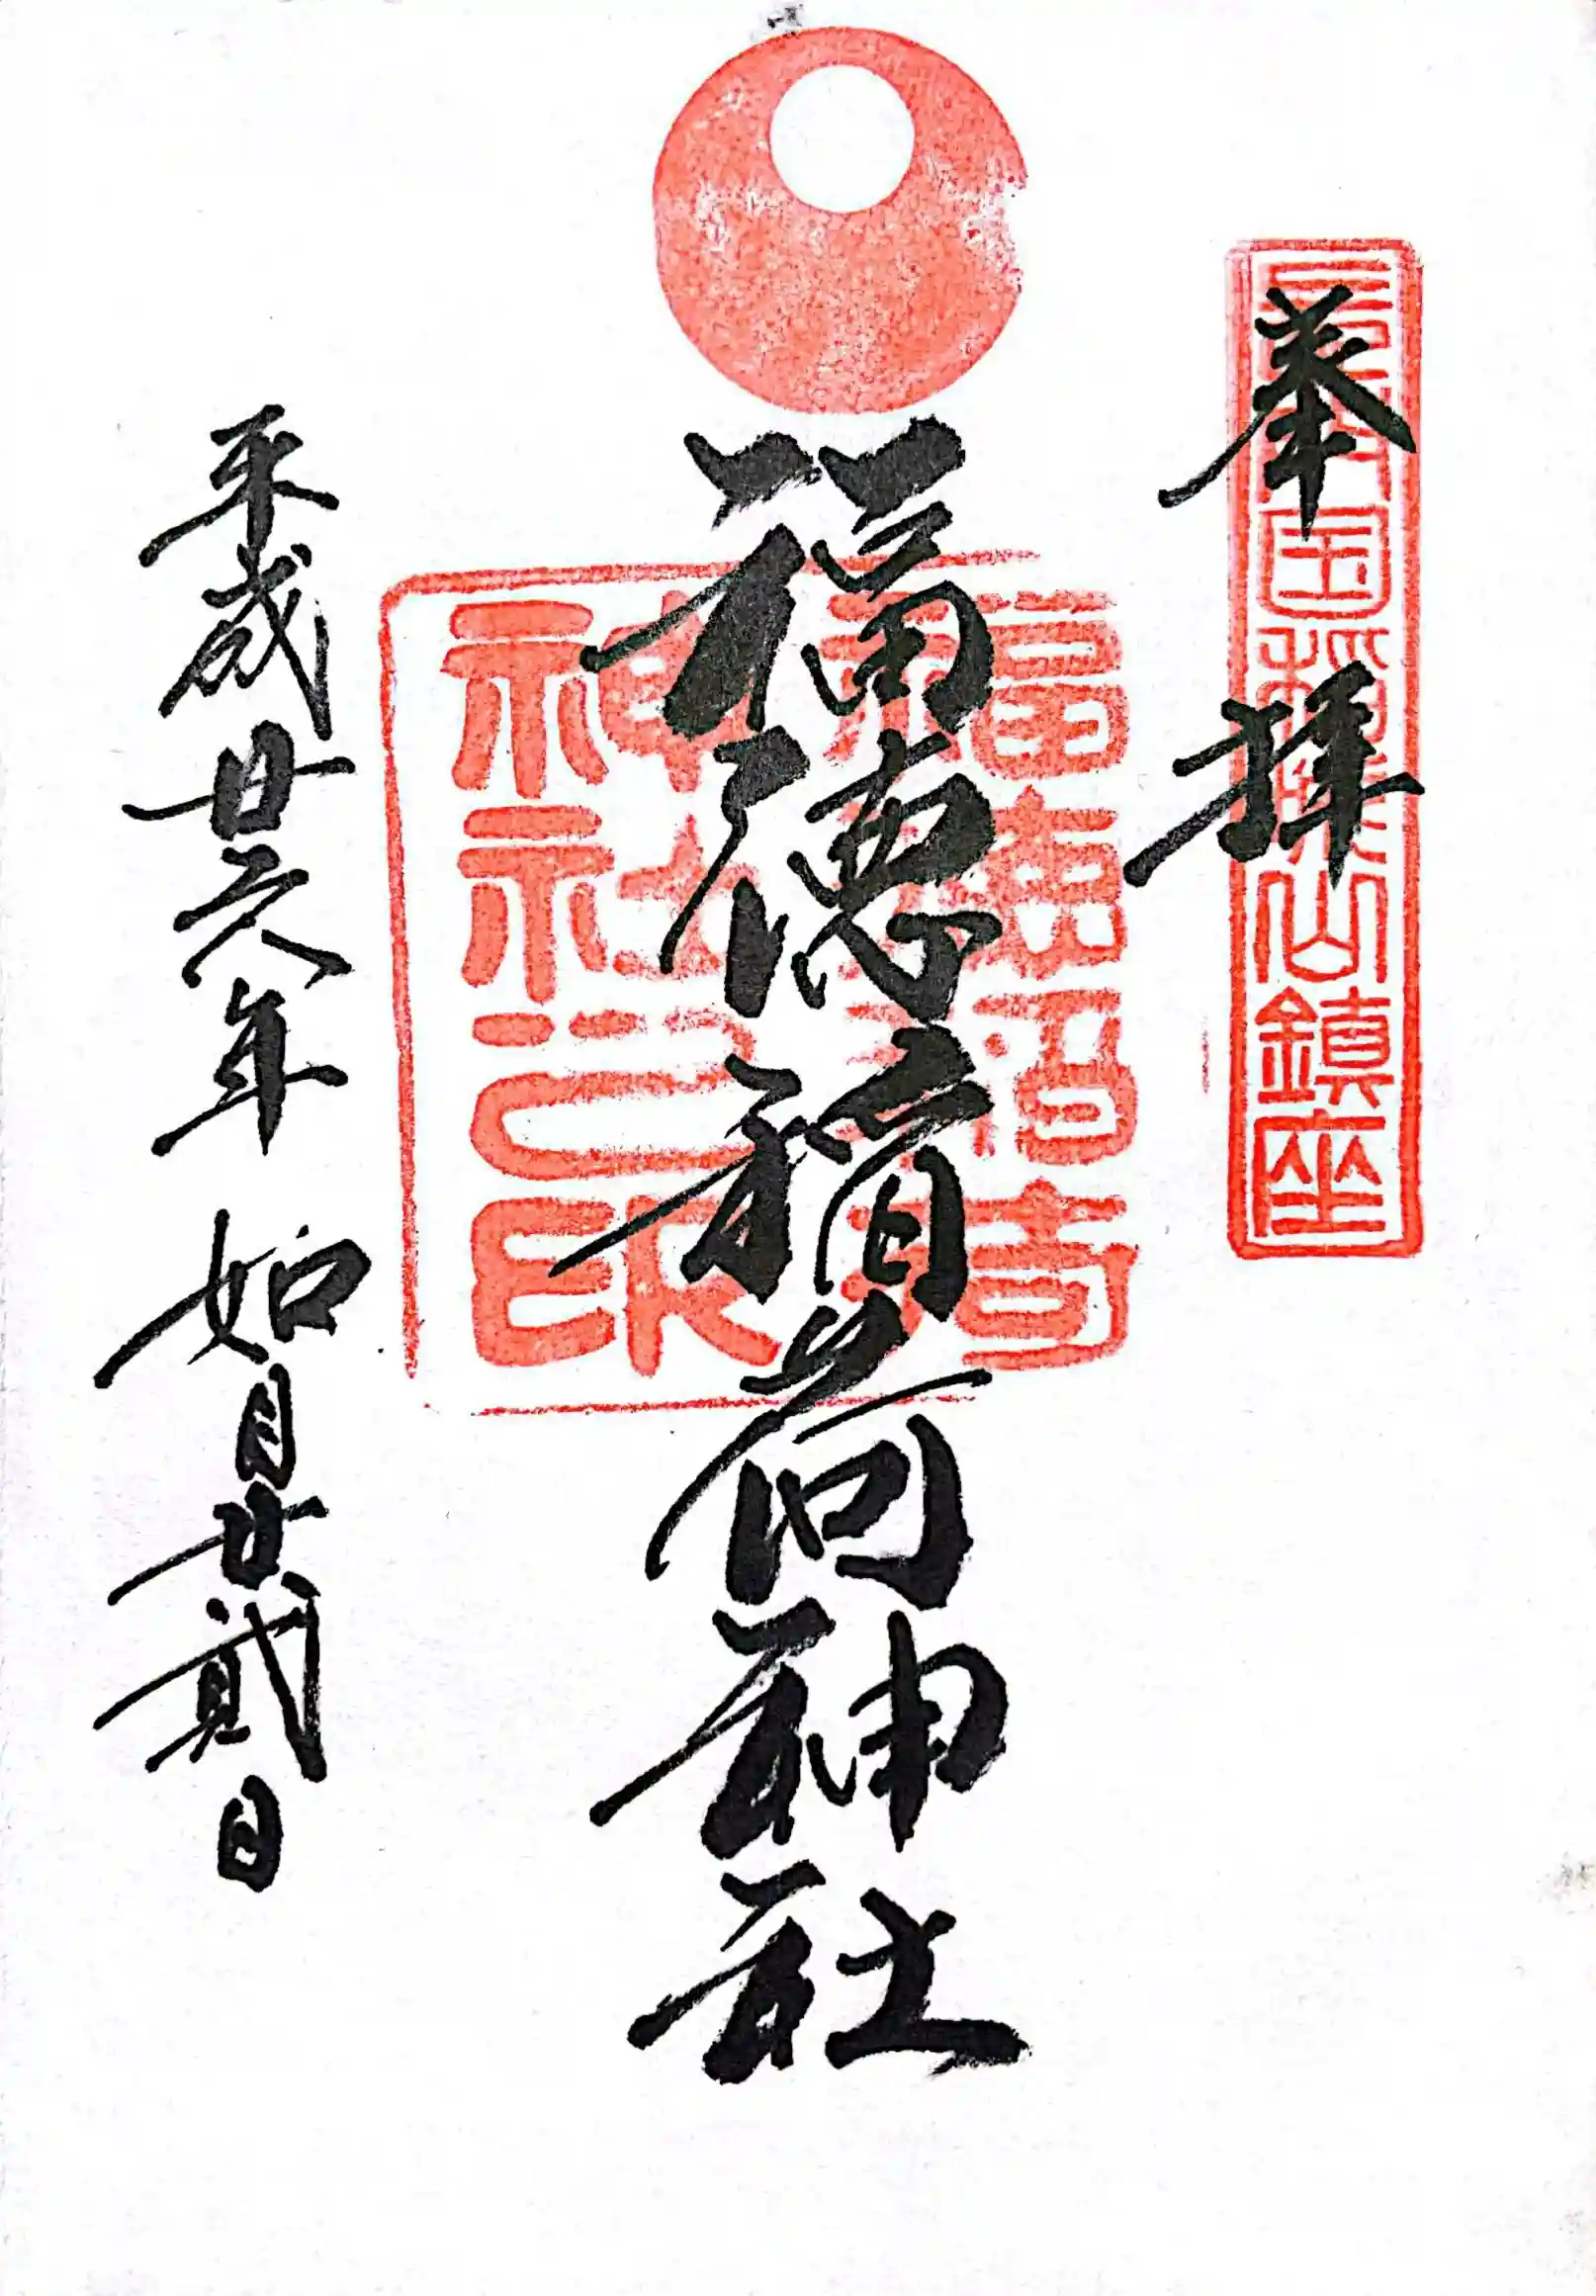 奉拝
国
山鎮座
福徳稲荷神社
福徳稲荷
神社之印
平成廿六年如月廿貳日